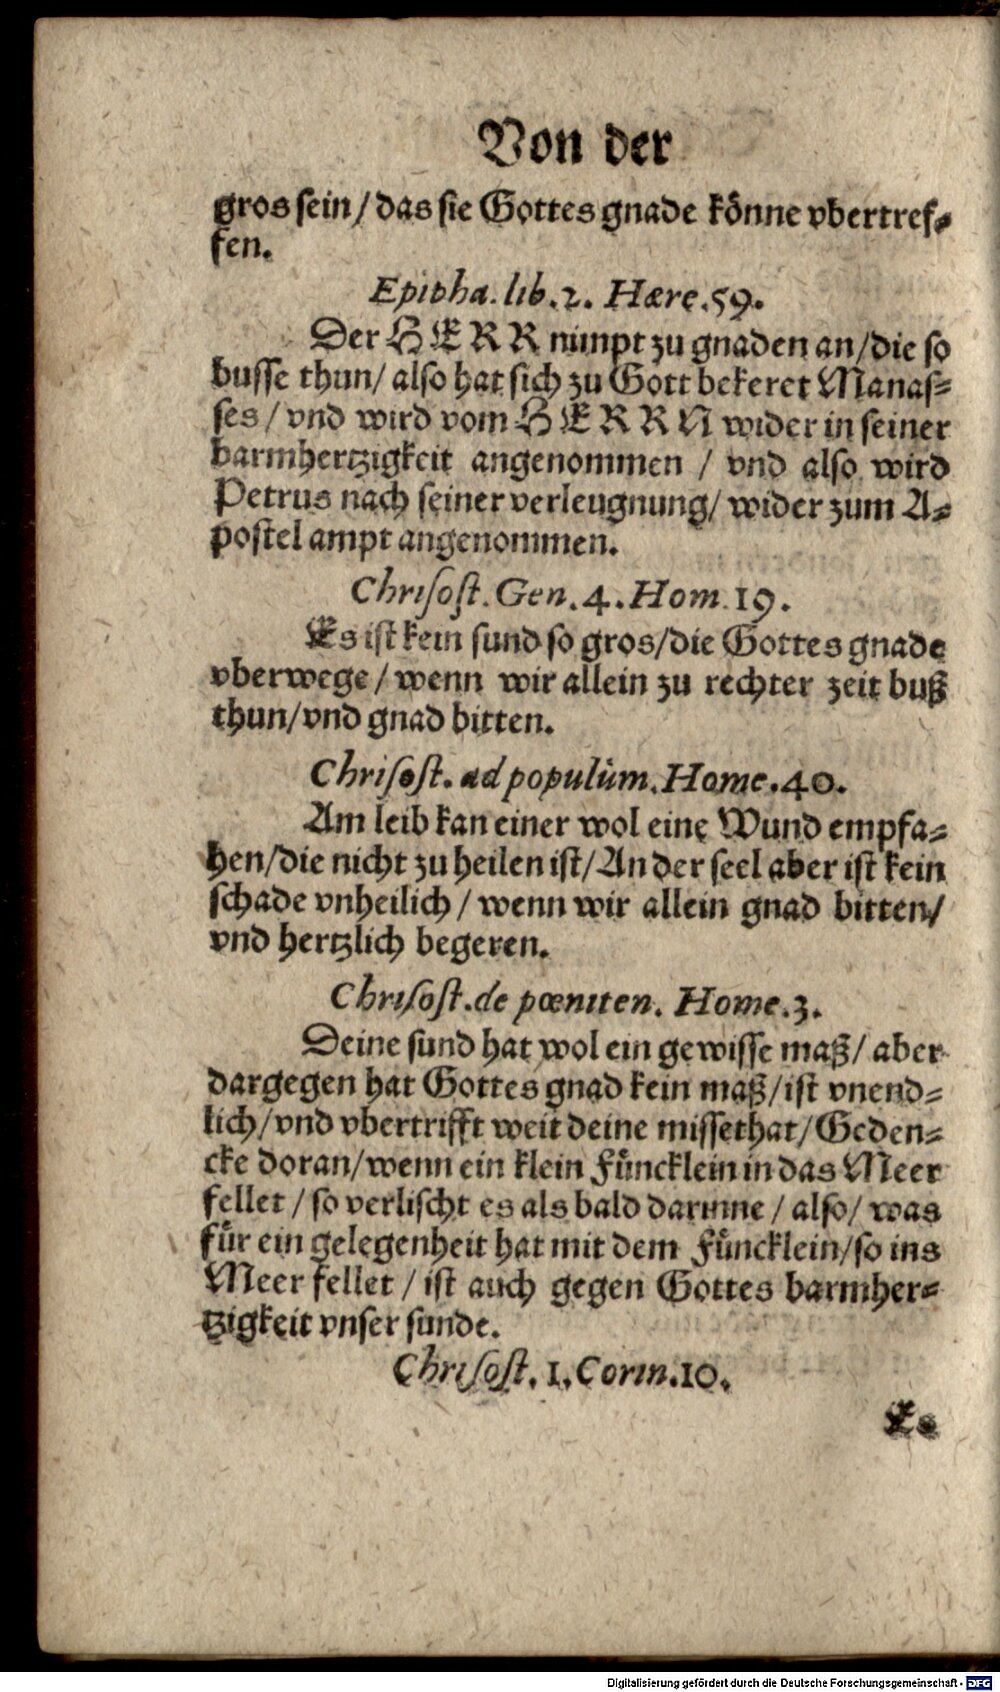 Von der
gros sein / das sie Gottes gnade könne vbertref⸗
fen.
Epipha. lib. 2. Hære. 59.
Der HERR nimpt zu gnaden an / die so
busse thun / also hat sich zu Gott bekeret Manas⸗
ses / vnd wird vom HERRN wider in seiner
barmhertzigkeit angenommen / vnd also wird
Petrus nach seiner verleugnung / wider zum A⸗
postel ampt angenommen.
Chrisost. Gen. 4. Hom. 19.
Es ist kein sund so gros / die Gottes gnade
vberwege / wenn wir allein zu rechter zeit buß
thun / vnd gnad bitten.
Chrisost. ad populùm. Home. 40.
Am leib kan einer wol eine Wund empfa⸗
hen / die nicht zu heilen ist / An der seel aber ist kein
schade vnheilich / wenn wir allein gnad bitten /
vnd hertzlich begeren.
Chrisost. de pœniten. Home. 3.
Deine sund hat wol ein gewisse maß / aber
dargegen hat Gottes gnad kein maß / ist vnend⸗
lich / vnd vbertrifft weit deine missethat / Geden⸗
cke doran / wenn ein klein Füncklein in das Meer
fellet / so verlischt es als bald darinne / also / was
für ein gelegenheit hat mit dem Füncklein / so ins
Meer fellet / ist auch gegen Gottes barmher⸗
tzigkeit vnser sunde.
Chrisost. 1. Corin. 10.
Es
Digitalisierung gefördert durch die Deutsche Forschungsgemeinschaft - DFG